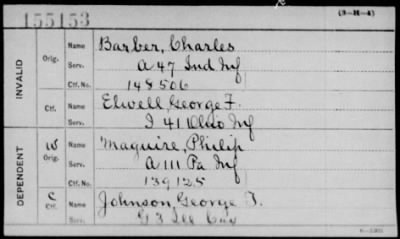 155153
(3-H-4)
INVALID
Orig.
Name
Barber, Charles
Serv.
A 47 Ind Inf
Ctf. No.
148506
Ctf.
Name
Elwell, George F.
Serv.
I 41 Ohio Inf
DEPENDENT
W
Orig.
Name
Maguire, Philip
Serv.
A 111 Pa Inf
Ctf. No.
139125
C
Ctf.
Name
Johnson, George T.
Serv.
G 3 Ill Cav